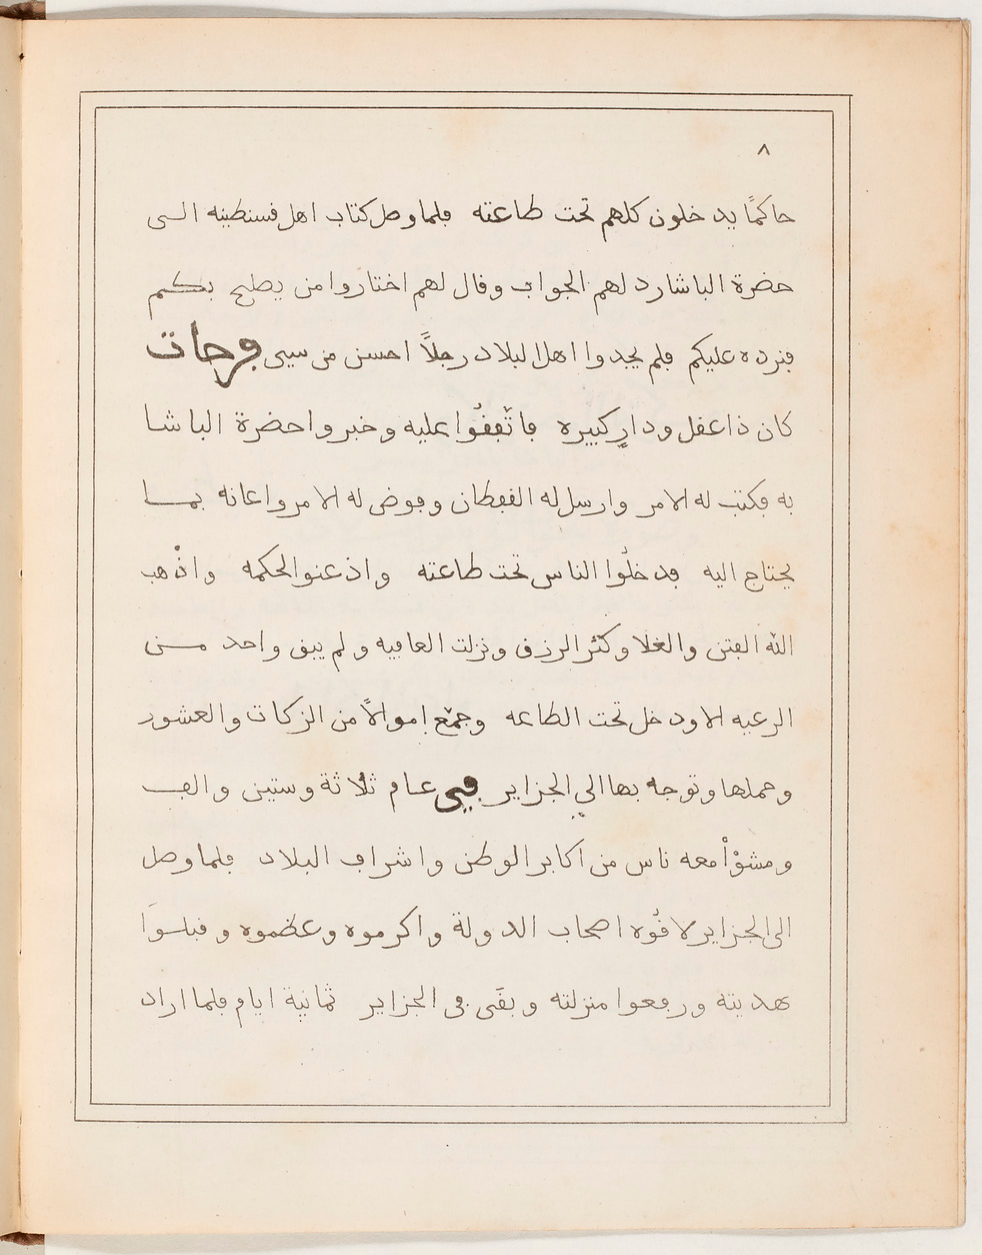 ٨
حاكمًا يدخلون كلهم تحت طاعته فلما وصل كتاب اهل فسنطينه الى
حضرة الباشا رد لهم الجواب وفال لهم اختاروا من يصلح بكم
فنرده عليكم فلم يجدوا اهل البلاد رجلاً احسن من سيى فرحات
كان ذا عفل ودارٍ كبيره فاتّففُوا عليه وخبروا حضرة الباشا
به فكتب له الامر وارسل له الففطان وفوض له الامر واعانه بما
يحتاج اليه فدخلُوا الناس تحت طاعته واذعنو الحكمه واذْهب
الله الفتن والغلا وكثر الرزف ونزلت العافيه ولم يبف واحد من
الرعيه الا ودخل تحت الطاعه وجمّع اموالاً من الزكات والعشور
وحملها وتوجه بها الي الجزاير فيى عام ثلاثة وستين والف
ومشوْاْ معه ناس من اكابر الوطن واشراف البلاد فلما وصل
الى الجزاير لافُوه اصحاب الدولة واكرموه وعظموه وفبلوا
هديته ورفعوا منزلته وبفَى فى الجزاير ثمانية ايام فلما اراد